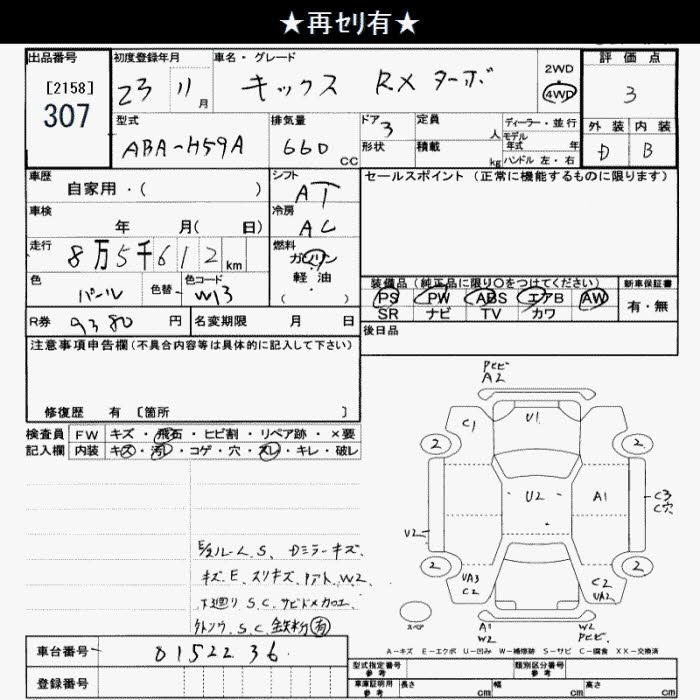 ★再セリ有★
出品番号 初度登録年月 車名・グレード 2WD 評価点
[2158] 23 11月 キックス RXターボ 4WD 3
307
型式 排気量 ドア 定員 ディーラー・並行 外装 内装
ABA-H59A 660 CC 3 人 モデル年式 年 D B
形状 積載 kg ハンドル 左・右
車歴 シフト セールスポイント (正常に機能するものに限ります)
自家用・( ) AT
車検 冷房
年 月( 日) AC
走行 燃料
8万5千612 km ガソリン
色 色替 色コード 軽油
パール W13 ( )
装備品 (純正品に限り○をつけてください) 新車保証書
PS PW ABS エアB AW 有・無
SR ナビ TV カワ
R券 9380 円 名変期限 月 日 後日品
注意事項申告欄(不具合内容等は具体的に記入して下さい)
修復歴 有 〔箇所 〕
検査員 FW キズ・飛石・ヒビ割・リペア跡・×要
記入欄 内装 キズ・汚レ・コゲ・穴・スレ・キレ・破レ
Pヒビ
A2
C1 U1
2 2
U2 A1 C3
C穴
U2
2 2
UA3 C2
C2 UA2
スペア A1 W2
W2 Pヒビ
E/gルームS、Dミラーキズ、
キズE、スリキズ、リアト、W2、
下廻りS.C.サビドメカロエ、
S.C.鉄粉有
A-キズ E-エクボ U-凹み W-補修跡 S-サビ C-腐食 XX-交換済
車台番号 0152236
登録番号
型式指定番号 参考 類別区分番号 参考
車庫証明用 参考 長さ cm 幅 cm 高さ cm